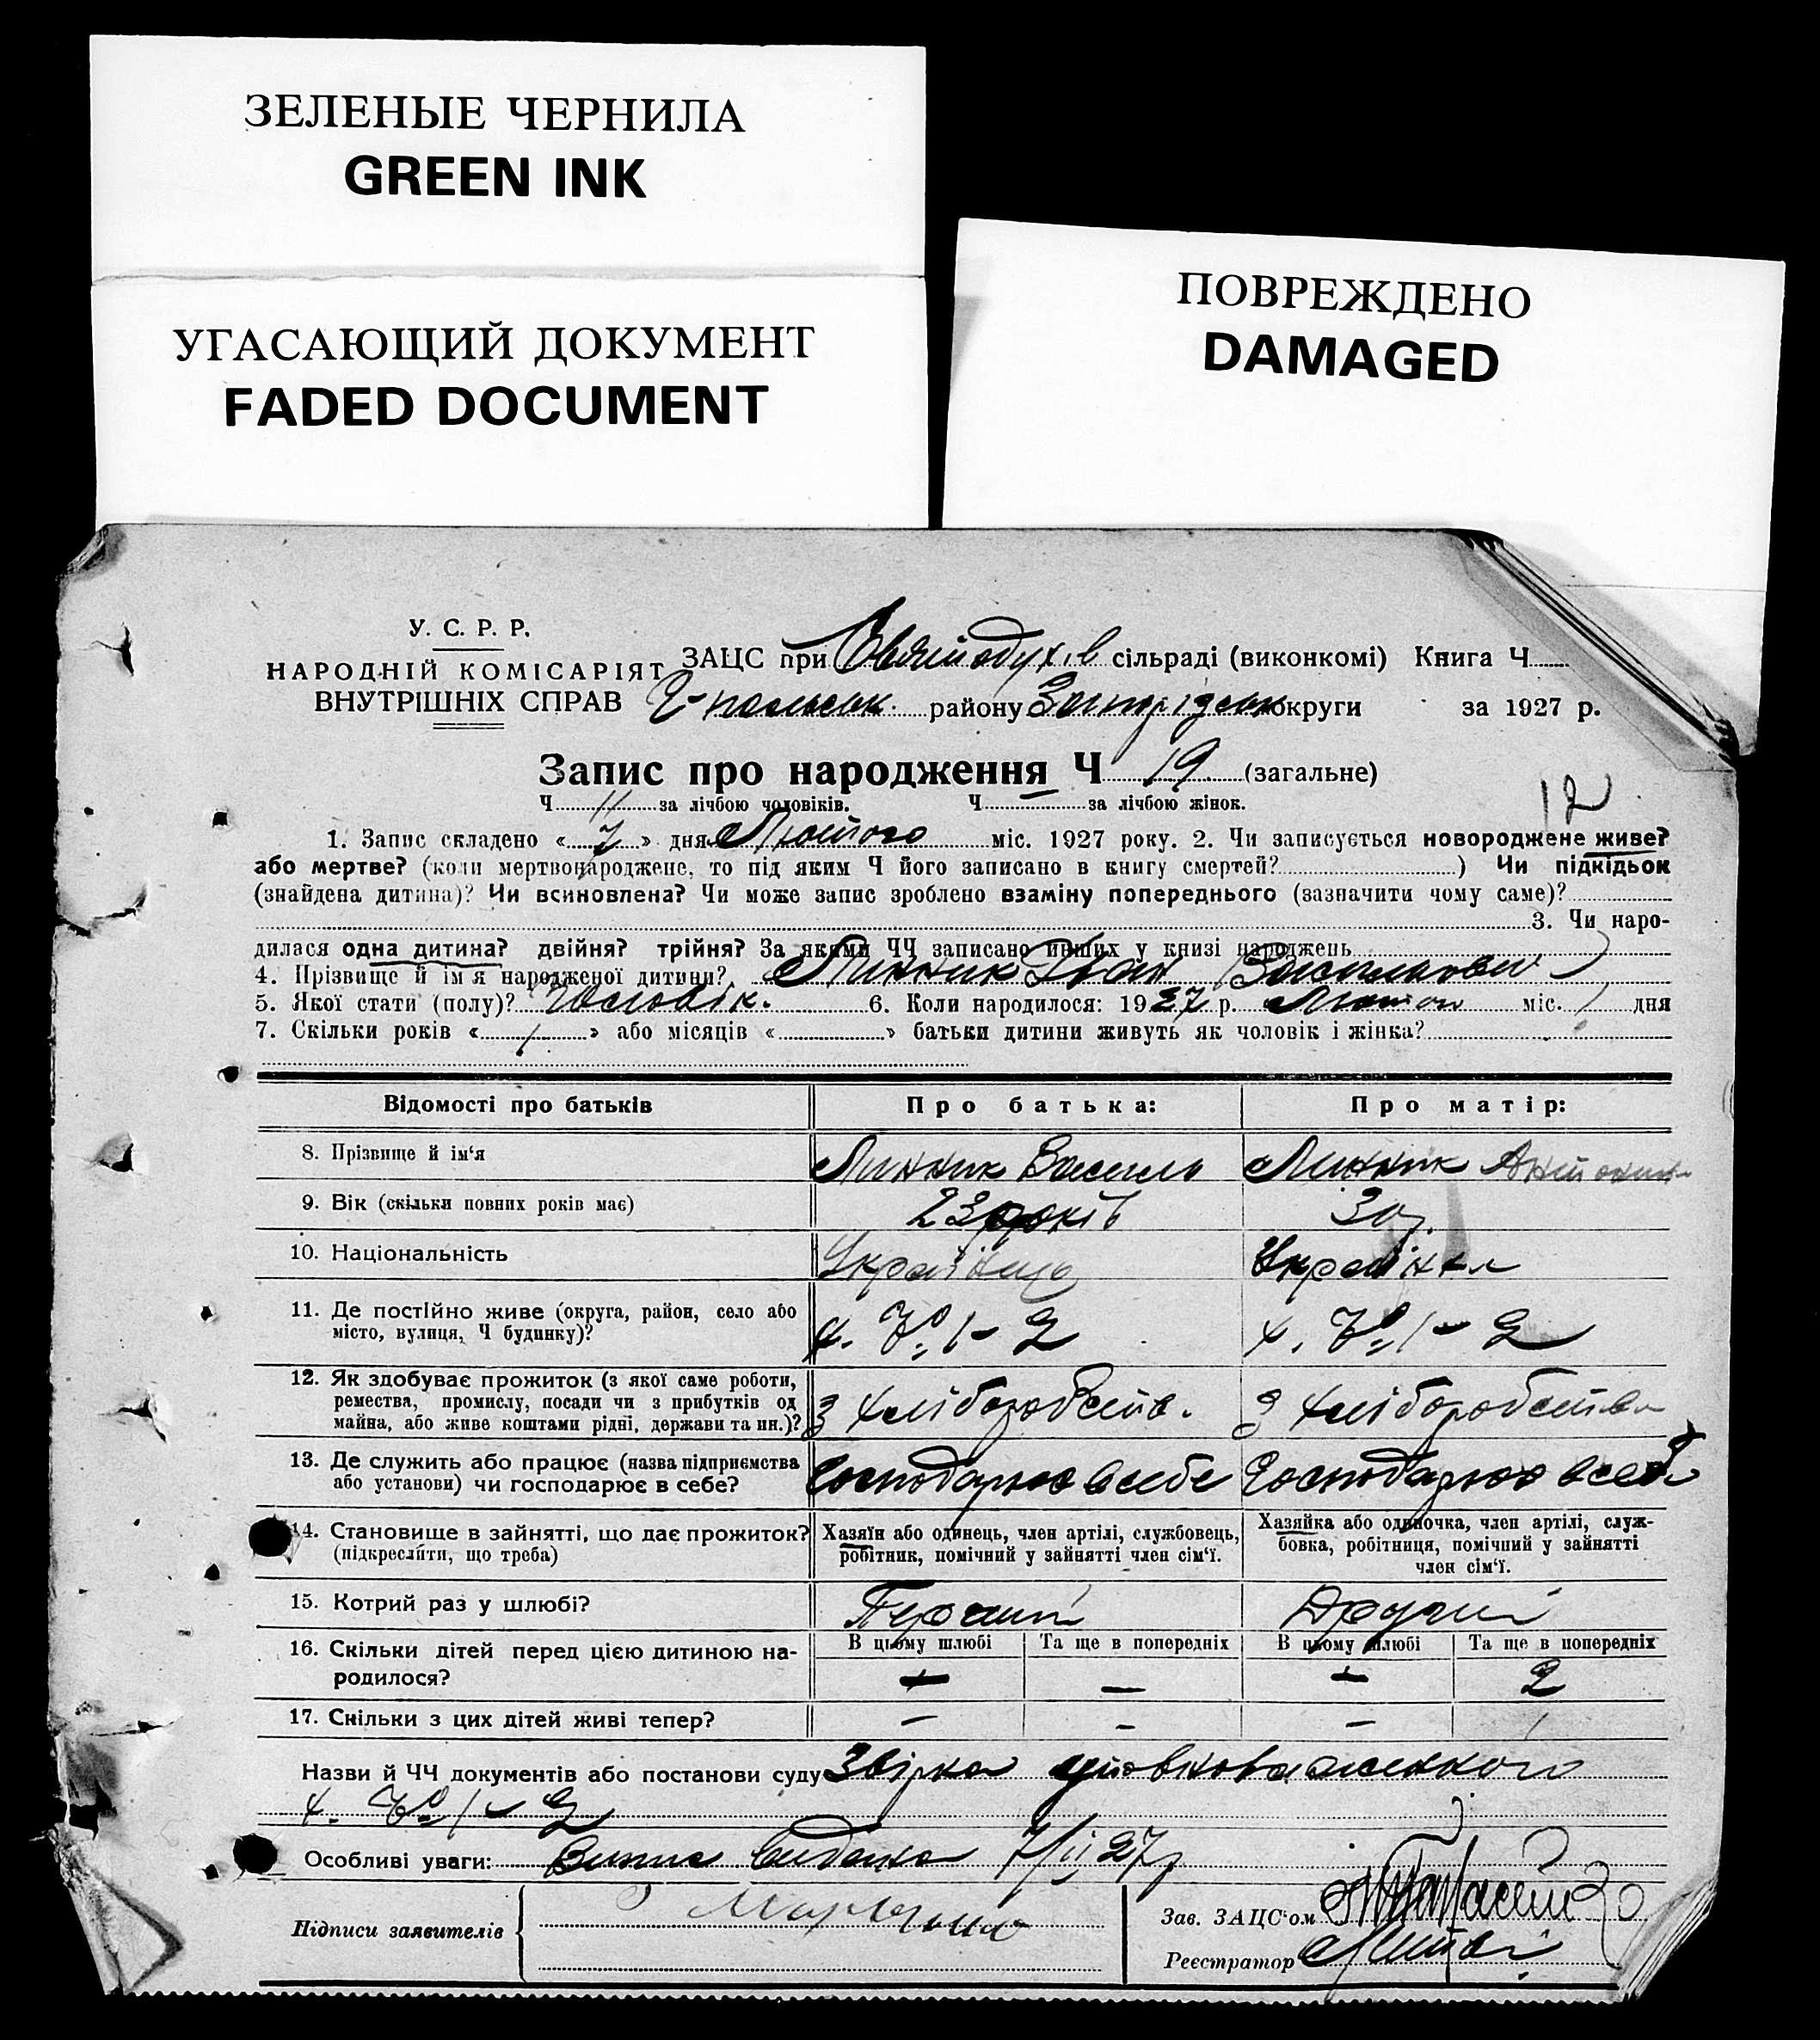 ЗЕЛЕНЫЕ ЧЕРНИЛА
GREEN INK
УГАСАЮЩИЙ ДОКУМЕНТ
FADED DOCUMENT
ПОВРЕЖДЕНО
DAMAGED
У. С. Р. Р.
НАРОДНІЙ КОМІСАРІЯТ
ВНУТРІШНІХ СПРАВ
ЗАЦС при Святодухів сільраді (виконкомі) Книга Ч
району Запорізьк округи за 1927 р.
Запис про народження Ч 19 (загальне)
12
Ч 11 за лічбою чоловіків. Ч — за лічбою жінок.
1. Запис складено «7» дня Лютого міс. 1927 року. 2. Чи записується новороджене живе?
або мертве? (коли мертвонароджене, то під яким Ч його записано в книгу смертей?) Чи підкідьок
(знайдена дитина)? Чи всиновлена? Чи може запис зроблено взаміну попереднього (зазначити чому саме)?
3. Чи наро-
дилася одна дитина? двійня? трійня? За якими ЧЧ записано инших у книзі народжень
4. Прізвище й ім'я народженої дитини? Линник Іван Васильович
5. Якої стати (полу)? Чоловік. 6. Коли народилося: 1927 р. Лютого міс. 1 дня
7. Скільки років «1» або місяців « » батьки дитини живуть як чоловік і жінка?
Відомості про батьків Про батька: Про матір:
8. Прізвище й ім'я Линник Василь Линник Антонина
9. Вік (скільки повних років має) 23 років 30
10. Національність Українець Українка
11. Де постійно живе (округа, район, село або
місто, вулиця, Ч будинку)?
х. № 1-2 х. № 1-2
12. Як здобуває прожиток (з якої саме роботи,
ремества, промислу, посади чи з прибутків од
майна, або живе коштами рідні, держави та ин.)?
З хліборобств. З хліборобства
13. Де служить або працює (назва підприємства
або установи) чи господарює в себе?
Господарює в себе Господарює в себе
14. Становище в зайнятті, що дає прожиток?
(підкреслити, що треба)
Хазяїн або одинець, член артілі, службовець,
робітник, помічний у зайнятті член сім'ї.
Хазяйка або одиночка, член артілі, служ-
бовка, робітниця, помічний у зайнятті
член сім'ї.
15. Котрий раз у шлюбі? Перший Другий
16. Скільки дітей перед цією дитиною на-
родилося?
В цьому шлюбі Та ще в попередніх В цьому шлюбі Та ще в попередніх
— — — 2
17. Скільки з цих дітей живі тепер? — — — /
Назви й ЧЧ документів або постанови суду Звірка
х. № 1-2
Особливі уваги: Випис видана 7/II 27 р
Підписи заявителів
Зав. ЗАЦС'ом
Реєстратор